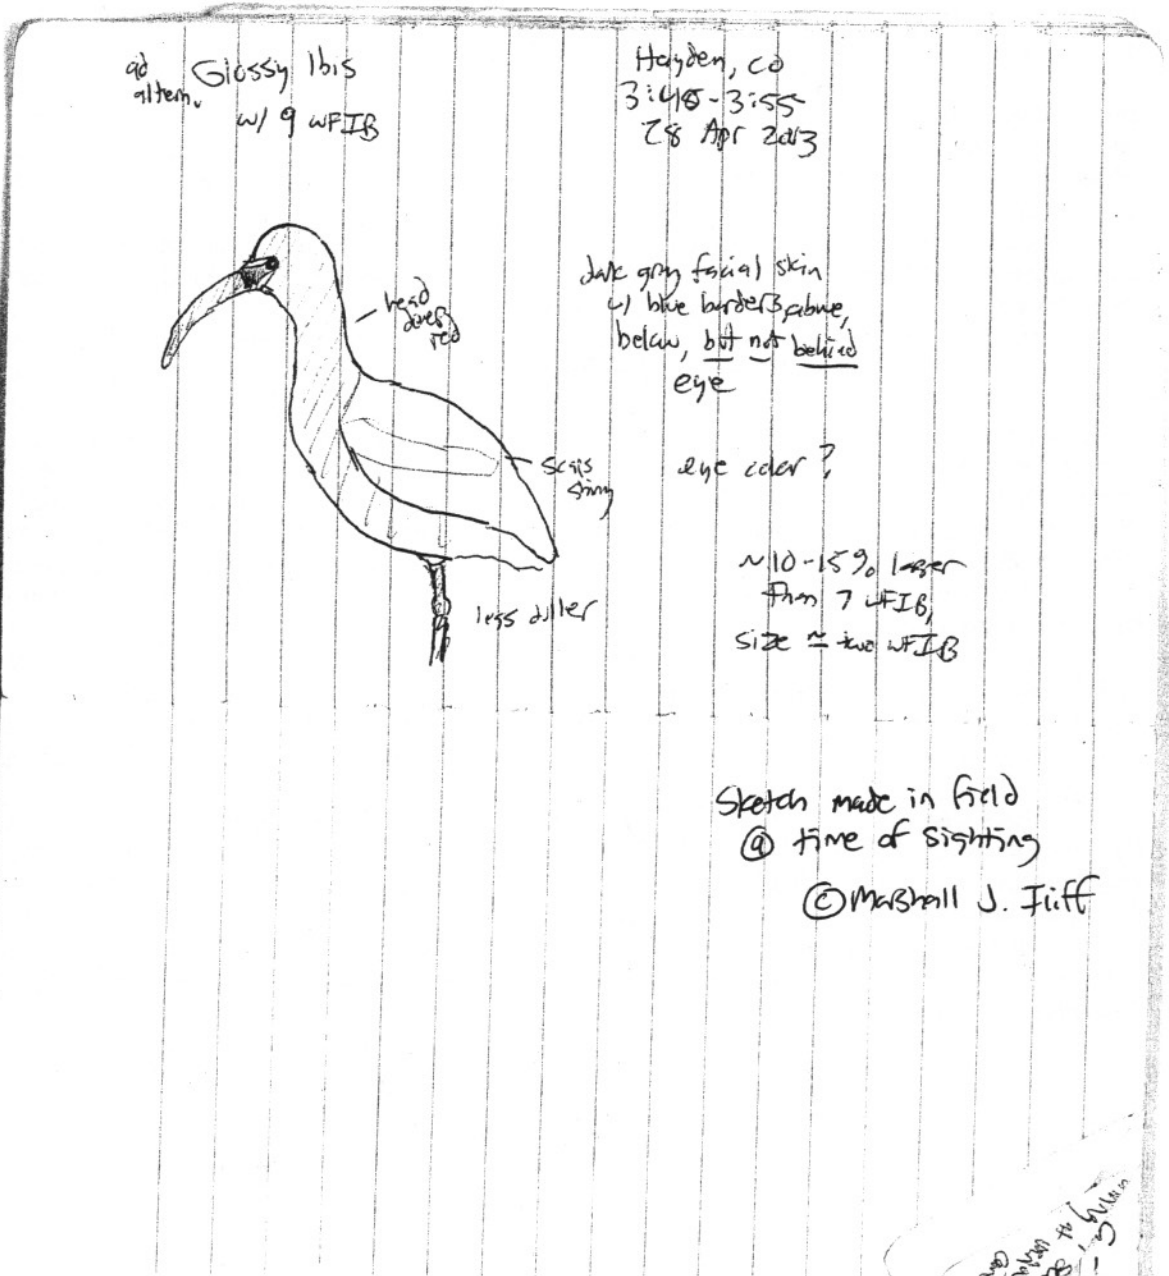 ad
altern.
Glossy Ibis
w/ 9 WFIB
Hayden, CO
3:45-3:55
28 Apr 2013
head
duller
red
dark gray facial skin
w/ blue borders above,
below, but not behind
eye
scaps
shiny
eye color?
~10-15% larger
than 7 WFIB,
size ≅ two WFIB
legs duller
Sketch made in field
@ time of sighting
© Marshall J. Iliff